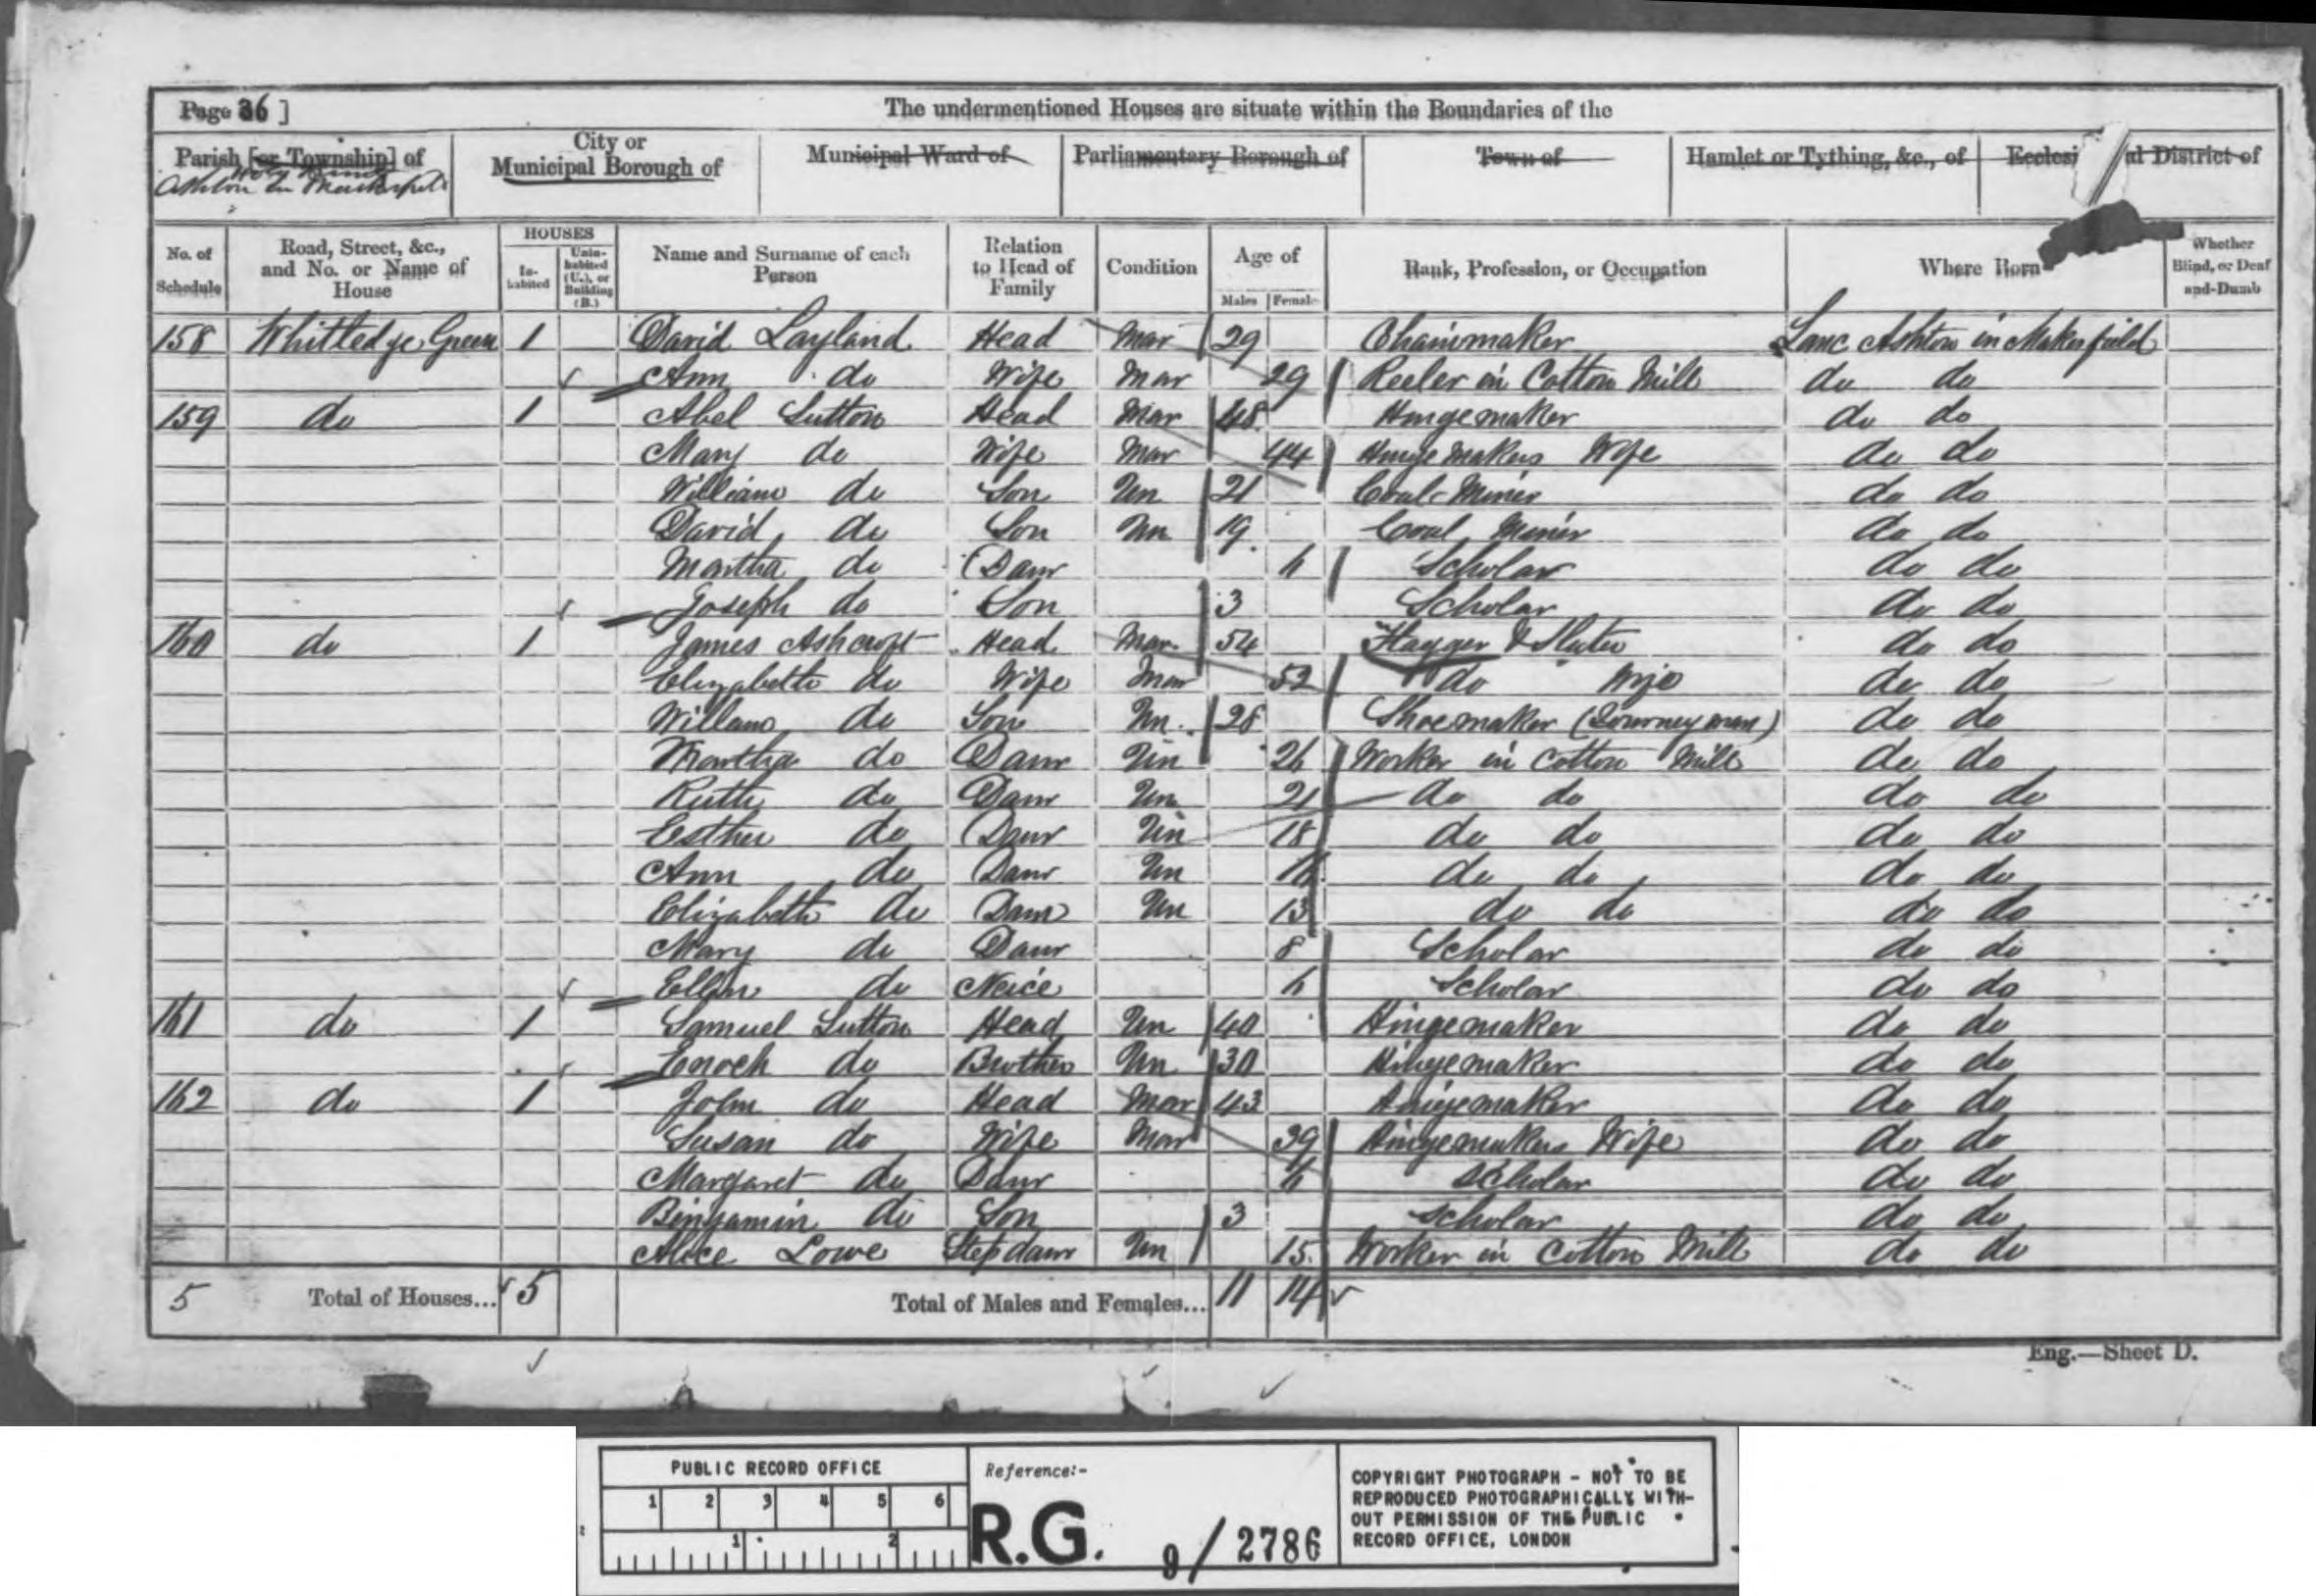 Page 36 ]
The undermentioned Houses are situate within the Boundaries of the
Parish [or Township] of
Ashton in Makerfield
City or Municipal Borough of
Municipal Ward of
Parliamentary Borough of
Town of
Hamlet or Tything, &c., of
Ecclesi al District of
No. of Schedule
Road, Street, &c., and No. or Name of House
HOUSES
In-habited
Unin-habited (U.), or Building (B.)
Name and Surname of each Person
Relation to Head of Family
Condition
Age of
Males
Female
Rank, Profession, or Occupation
Where Born
Whether Blind, or Deaf and-Dumb
158 Whitledge Green 1 David Layland Head Mar 29 Chainmaker Lanc Ashton in Makerfield
Ann do Wife Mar 29 Reeler in Cotton Mill do do
159 do 1 Abel Sutton Head Mar 48 Hingemaker do do
Mary do Wife Mar 44 Hingemakers Wife do do
William do Son Un 21 Coal Miner do do
David do Son Un 19 Coal Miner do do
Martha do Daur Scholar do do
Joseph do Son 3 Scholar do do
160 do 1 James Ashcroft Head Mar 54 Flagger & Slater do do
Elizabeth do Wife Mar 52 do Wife do do
Willam do Son Un 28 Shoemaker (Journeyman) do do
Martha do Daur Un 26 Worker in Cotton Mill do do
Ruth do Daur Un 21 do do do do
Esther do Daur Un 18 do do do do
Ann do Daur Un do do do do
Elizabeth do Daur Un 13 do do do do
Mary do Daur 8 Scholar do do
Ellen do Neice Scholar do do
161 do 1 Samuel Sutton Head Un 40 Hingemaker do do
Enoch do Brother Un 30 Hingemaker do do
162 do 1 John do Head Mar 43 Hingemaker do do
Susan do Wife Mar 39 Hingemakers Wife do do
Margaret do Daur Scholar do do
Binjamin do Son 3 Scholar do do
Alice Lowe Stepdaur Un 15 Worker in Cotton Mill do do
5 Total of Houses... 5 Total of Males and Females... 11 14
Eng.—Sheet D.
PUBLIC RECORD OFFICE
1 2 3 4 5 6
1 2
Reference:-
R.G. 9/2786
COPYRIGHT PHOTOGRAPH - NOT TO BE
REPRODUCED PHOTOGRAPHICALLY WITH-
OUT PERMISSION OF THE PUBLIC
RECORD OFFICE, LONDON